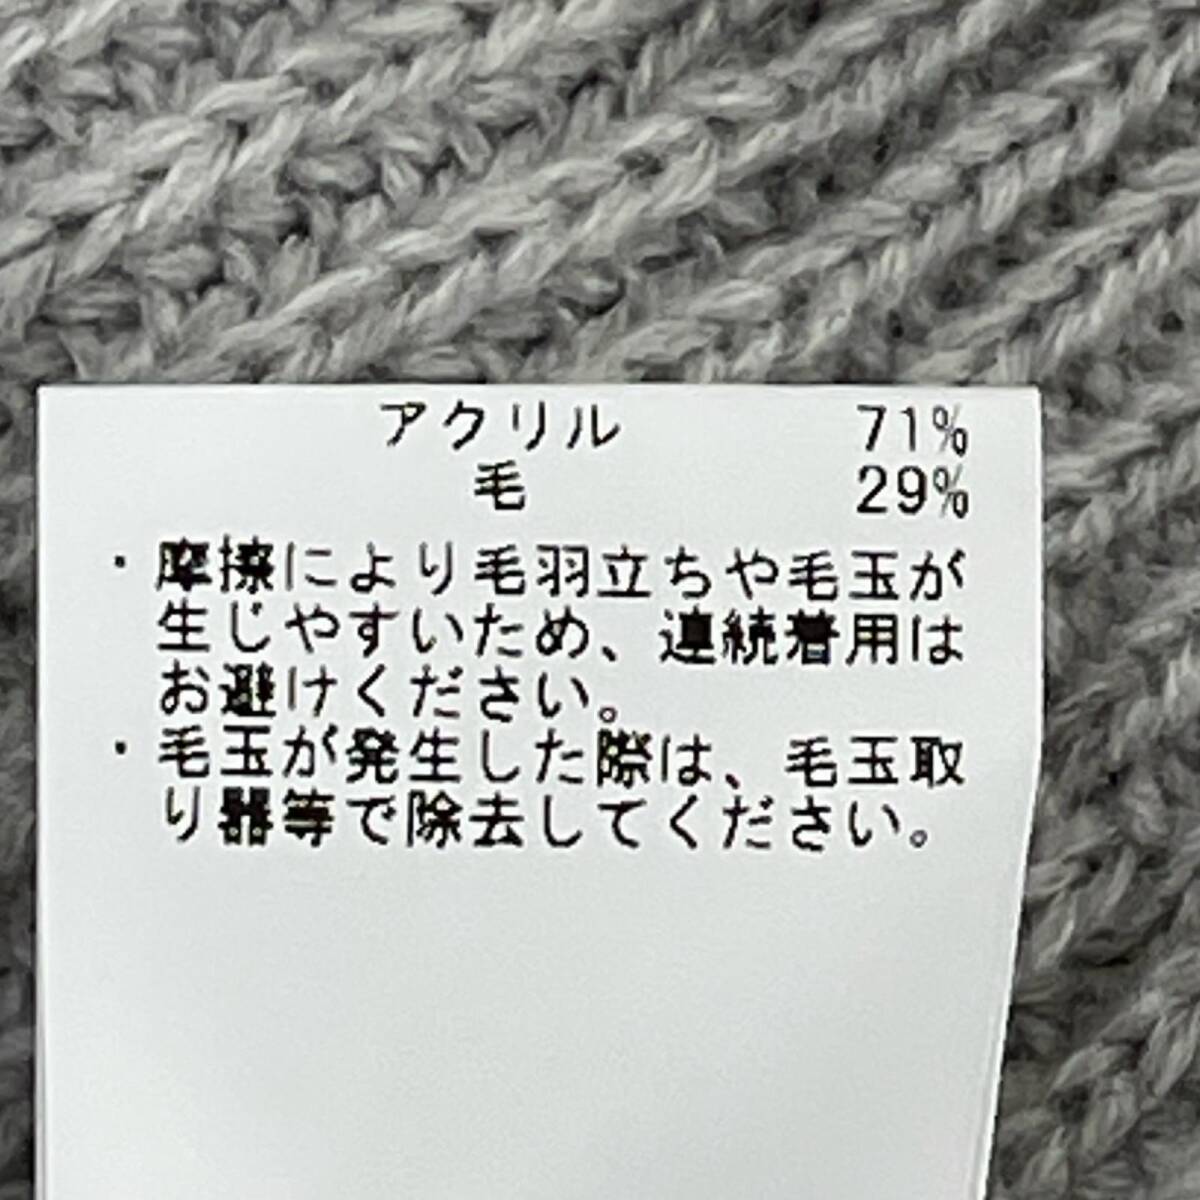 アクリル 71%
毛 29%
・摩擦により毛羽立ちや毛玉が
生じやすいため、連続着用は
お避けください。
・毛玉が発生した際は、毛玉取
り器等で除去してください。